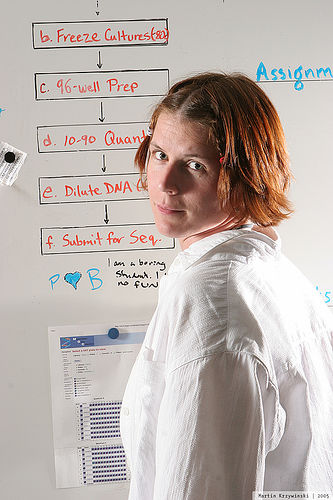 b. Freeze Cultures(-80)
c. 96-well Prep
d. 10-90 Quant
e. Dilute DNA
f. Submit for Seq.
Assignm
P B
I am a boring
student. I
no fun
's
Martin Krzywinski | 2005